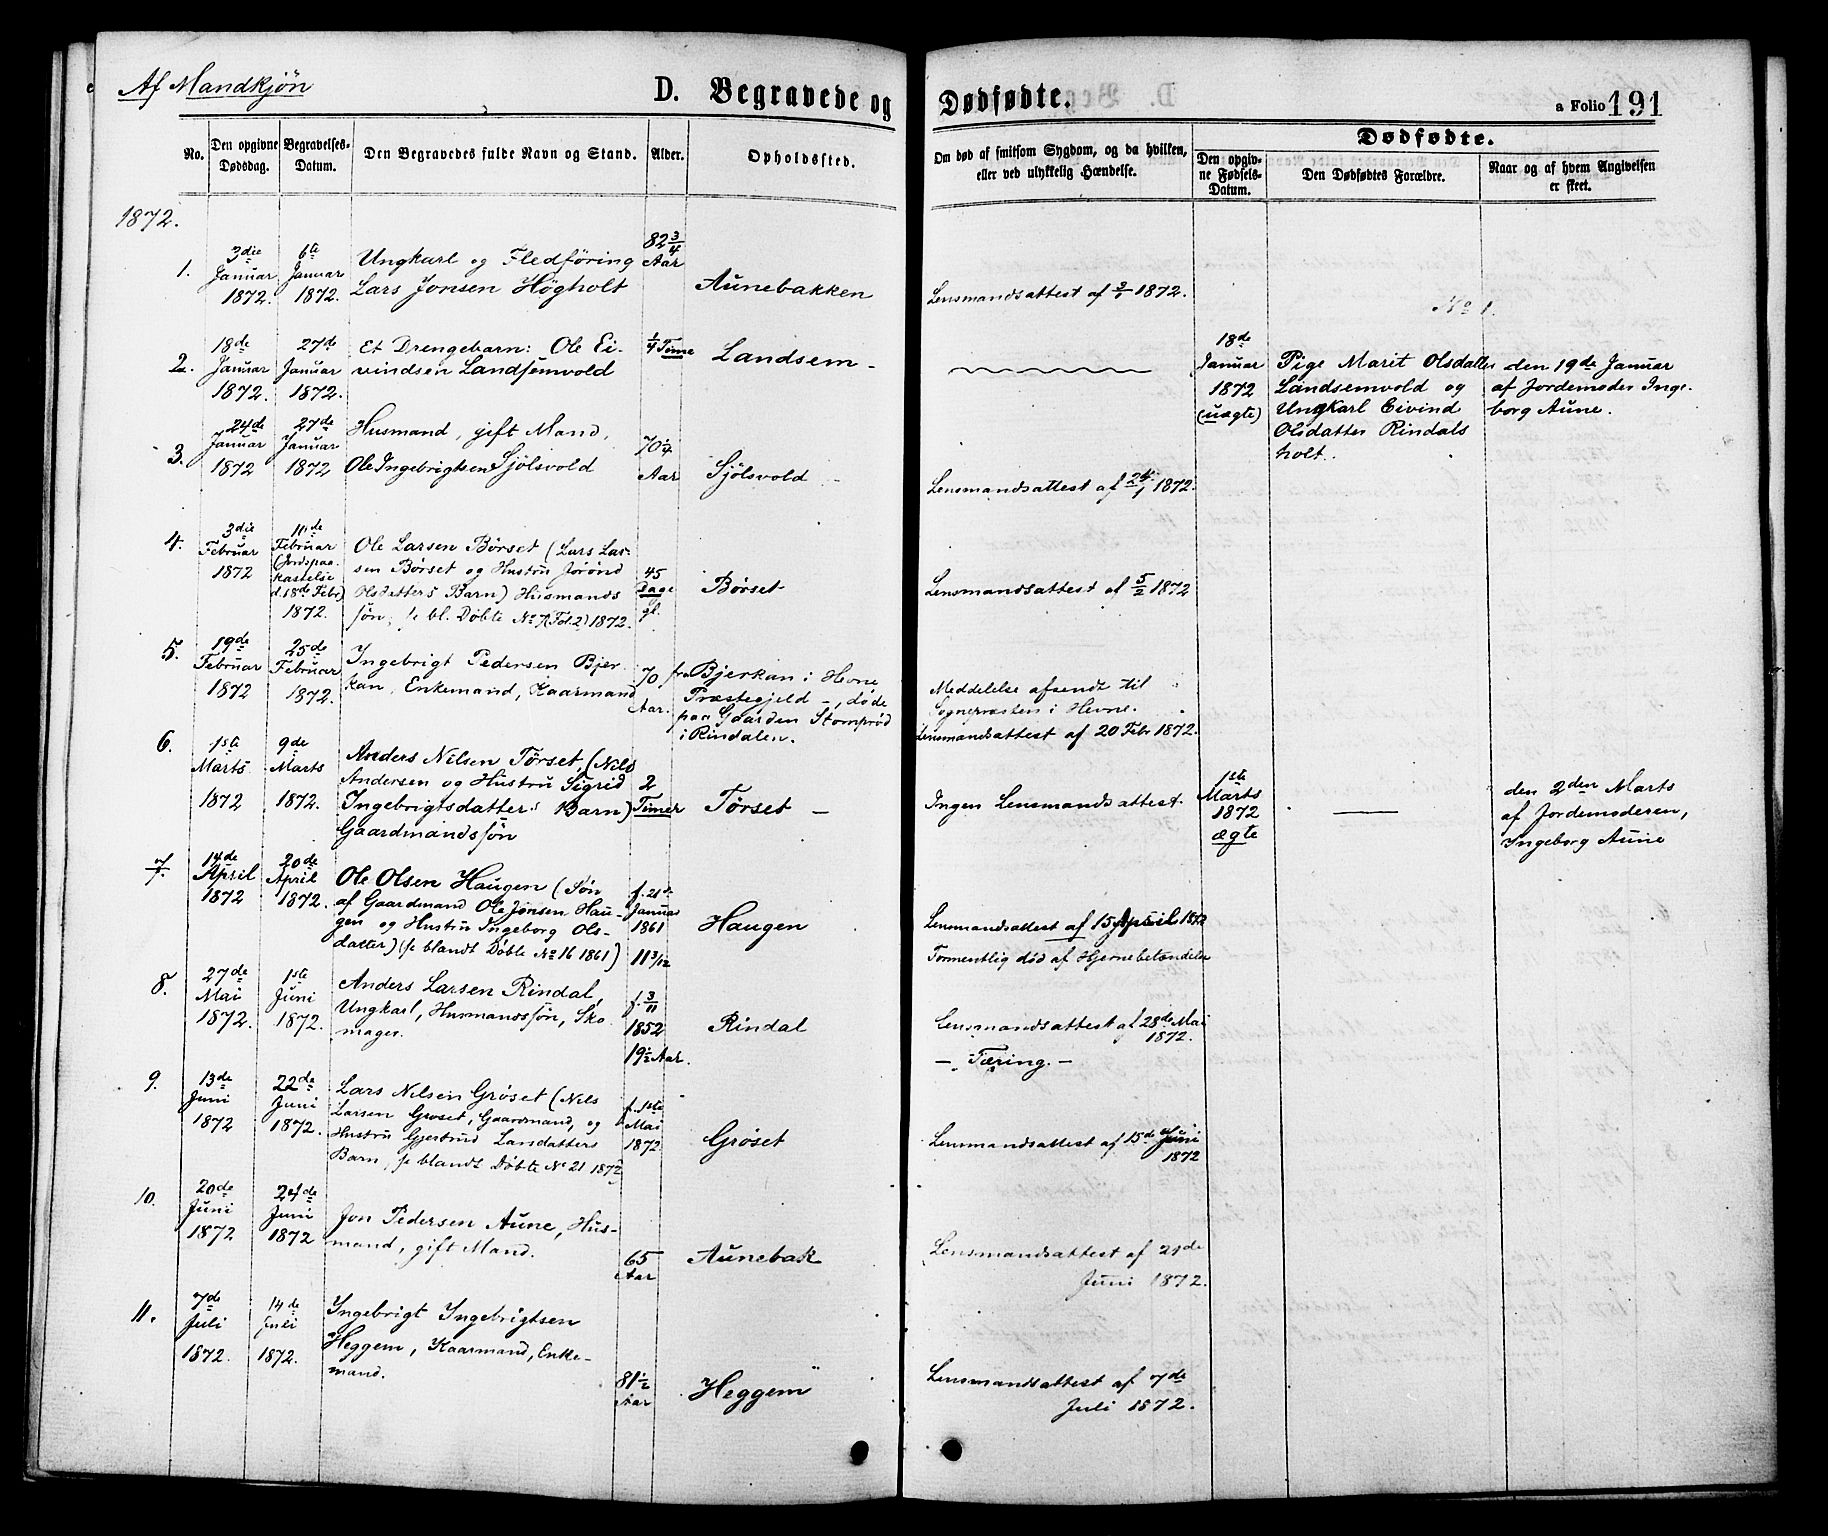 Af Mandkjøn
D. Begravede og Dødfødte.
a Folio 191
No.
Den opgivne Dødsdag.
Begravelses-Datum.
Den Begravedes fulde Navn og Stand.
Alder.
Opholdssted.
Om død af smitsom Sygdom, og da hvilken,
eller ved ulykkelig Hændelse.
Dødfødte.
Den opgiv-
ne Fødsels-
Datum.
Den Dødfødtes Forældre.
Naar og af hvem Angivelsen
er skeet.
1872.
1.
3die
Januar
1872.
6te
Januar
1872.
Ungkarl og Fledføring
Lars Jonsen Högholt
82 3/4
Aar
Aunebakken
Lensmandsattest af 3/1 1872.
No 1.
2.
18de
Januar
1872.
27de
Januar
1872.
Et Drengebarn: Ole Ei-
vindsen Landsemvold
1/4 Time
Landsem -
18de
Januar
1872
(uægte)
Pige Marit Olsdatter
Landsemvold og
Ungkarl Eivind
Olsdatter Rindals
holt.
den 19de Januar
af Jordemoder Inge-
borg Aune.
3.
24de
Januar
1872
27de
Januar
1872
Husmand, gift Mand,
Ole Ingebrigtsen Sjölsvold
70 1/4
Aar
Sjölsvold -
Lensmandsattest af 24/1 1872.
4.
3die
Februar
1872
11de
Februar
(Jordspaa-
kastelse
d. 18de Febr)
1872.
Ole Larsen Børset (Lars Lar-
sen Børset og Hustru Jorønd
Olsdatters Barn) Husmands
søn, se bl. Døbte No 7 (Fol. 2) 1872.
45
Dage
gl.
Børset
Lensmandsattest af 5/2 1872
5.
19de
Februar
1872
25de
Februar
1872.
Ingebrigt Pedersen Bjer
kan, Enkemand, Kaarmand
70
Aar.
fra Bjerkan i Hevne
Præstegjeld -, døde
paa Gaarden Stomprød
i Rindalen.
Meddelelse afsendt til
Sognepresten i Hevne.
Lensmandsattest af 20 Febr 1872.
6.
1ste
Marts
1872
9de
Marts
1872.
Anders Nilsen Tørset, (Nils
Andersen og Hustru Sigrid
Ingebrigtsdatters Barn)
Gaardmandssøn
2
Timer
Tørset -
Ingen Lensmandsattest.
1ste
Marts
1872
ægte
den 2den Marts
af Jordemoderen,
Ingeborg Aune
7.
14de
April
1872
20de
April
1872.
Ole Olsen Haugen (Søn
af Gaardmand Ole Jonsen Hau-
gen og Hustru Ingeborg Ols-
datter) (se blandt Døbte No 16 1861)
f. 21de
Januar
1861
11 3/12
Haugen
Lensmandsattest af 15 April 1872
Formentlig død af Hjernebetændelse
8.
27de
Mai
1872.
1ste
Juni
1872.
Anders Larsen Rindal,
Ungkarl, Husmandssøn, Sko
mager.
f. 3/11
1852
19 1/2 Aar.
Rindal
Lensmandsattest af 28de Mai
1872.
- Tæring. -
9.
13de
Juni
1872
22de
Juni
1872.
Lars Nilsen Grøset (Nils
Larsen Grøset, Gaardmand, og
Hustru Gjertrud Larsdatters
Barn, se blandt Døbte No 21 1872)
f. 1ste
Mai
1872.
Grøset
Lensmandsattest af 15de Juni
1872
10.
20de
Juni
1872
24de
Juni
1872
Jon Pedersen Aune, Hus-
mand, gift Mand.
65
Aar
Aunebak
Lensmandsattest af 21de
Juni 1872.
11.
7de
Juli
1872.
14de
Juli
1872.
Ingebrigt Ingebrigtsen
Heggem, Kaarmand, Enke-
mand.
81 1/2
Aar
Heggem
Lensmandsattest af 7de
Juli 1872.